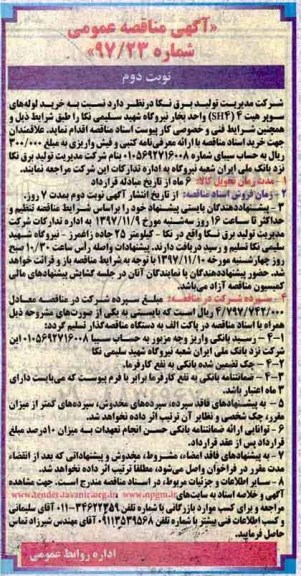 «آگهی مناقصه عمومی
شماره ۹۷/۲۳»
نوبت دوم
شرکت مدیریت تولید برق نکا در نظر دارد نسبت به خرید لوله‌های
سوپر هیت ۴ (SH۴) واحد بخار نیروگاه شهید سلیمی نکا را طبق شرایط ذیل و
همچنین شرایط فنی و خصوصی کار پیوست اسناد مناقصه اقدام نماید. علاقمندان
جهت خرید اسناد مناقصه با ارائه معرفی‌نامه کتبی و فیش واریزی به مبلغ ۳۰۰/۰۰۰
ریال به حساب سیبای شماره ۰۱۰۵۶۹۲۷۱۶۰۰۸ بنام شرکت مدیریت تولید برق نکا
نزد بانک ملی ایران شعبه نیروگاه به اداره تدارکات این شرکت مراجعه نمایند.
۱- مدت زمان تحویل کالا: ۶ ماه از تاریخ مبادله قرارداد
۲- زمان فروش اسناد مناقصه: از تاریخ انتشار آگهی نوبت دوم بمدت ۷ روز.
۳- پیشنهاددهندگان بایستی پیشنهاد خود را براساس شرایط مناقصه تنظیم و
حداکثر تا ساعت ۱۶ روز سه‌شنبه مورخ ۱۳۹۷/۱۱/۹ به اداره تدارکات شرکت
مدیریت تولید برق نکا واقع در نکا - کیلومتر ۲۵ جاده زاغمرز - نیروگاه شهید
سلیمی نکا تسلیم و رسید دریافت دارند. پیشنهادات واصله رأس ساعت ۱۰/۳۰ صبح
روز چهارشنبه مورخه ۱۳۹۷/۱۱/۱۰ با توجه به شرایط مناقصه باز و قرائت خواهد
شد. حضور پیشنهاددهندگان یا نمایندگان آنان در جلسه گشایش پیشنهادهای مالی
کمیسیون مناقصه آزاد می‌باشد.
۴- سپرده شرکت در مناقصه: مبلغ سپرده شرکت در مناقصه معادل
۴/۷۹۷/۷۴۲/۰۰۰ ریال است که بایستی به یکی از صورت‌های مشروحه ذیل
همراه با اسناد مناقصه در پاکت الف به دستگاه مناقصه‌گذار تسلیم گردد:
۱-۴- رسید بانکی واریز وجه مزبور به حساب سیبا ۰۱۰۵۶۹۲۷۱۶۰۰۸ این
شرکت نزد بانک ملی ایران شعبه نیروگاه شهید سلیمی نکا
۲-۴- چک تضمین شده بانکی به نفع کارفرما.
۳-۴- ضمانتنامه بانکی به نفع کارفرما برابر با فرم پیوست که می‌بایست دارای
۳ ماه اعتبار باشد.
۵- به پیشنهادهای فاقد سپرده، سپرده‌های مخدوش، سپرده‌های کمتر از میزان
مقرر، چک شخصی و نظایر آن ترتیب اثر داده نخواهد شد.
۶- توانایی ارائه ضمانتنامه بانکی حسن انجام تعهدات به میزان ۱۰درصد مبلغ
قرارداد پس از عقد قرارداد.
۷- به پیشنهادهای فاقد امضاء، مشروط، مخدوش و پیشنهاداتی که بعد از انقضاء
مدت مقرر در فراخوان واصل می‌شود، مطلقاً ترتیب اثر داده نخواهد شد.
۸- سایر اطلاعات و جزئیات مربوط، در اسناد مناقصه مندرج است. جهت مشاهده
آگهی و خلاصه اسناد به سایت‌های www.npgm.ir www.tender.tavanir.org.ir
مراجعه و برای کسب موارد بازرگانی با شماره تلفن ۳۴۶۲۲۴۵۹-۰۱۱ آقای سلیمانی
و کسب اطلاعات فنی بیشتر با شماره تلفن ۰۹۱۱۳۵۳۹۵۶۸ آقای مهندس شیرزاد تماس
حاصل فرمایید.
اداره روابط عمومی